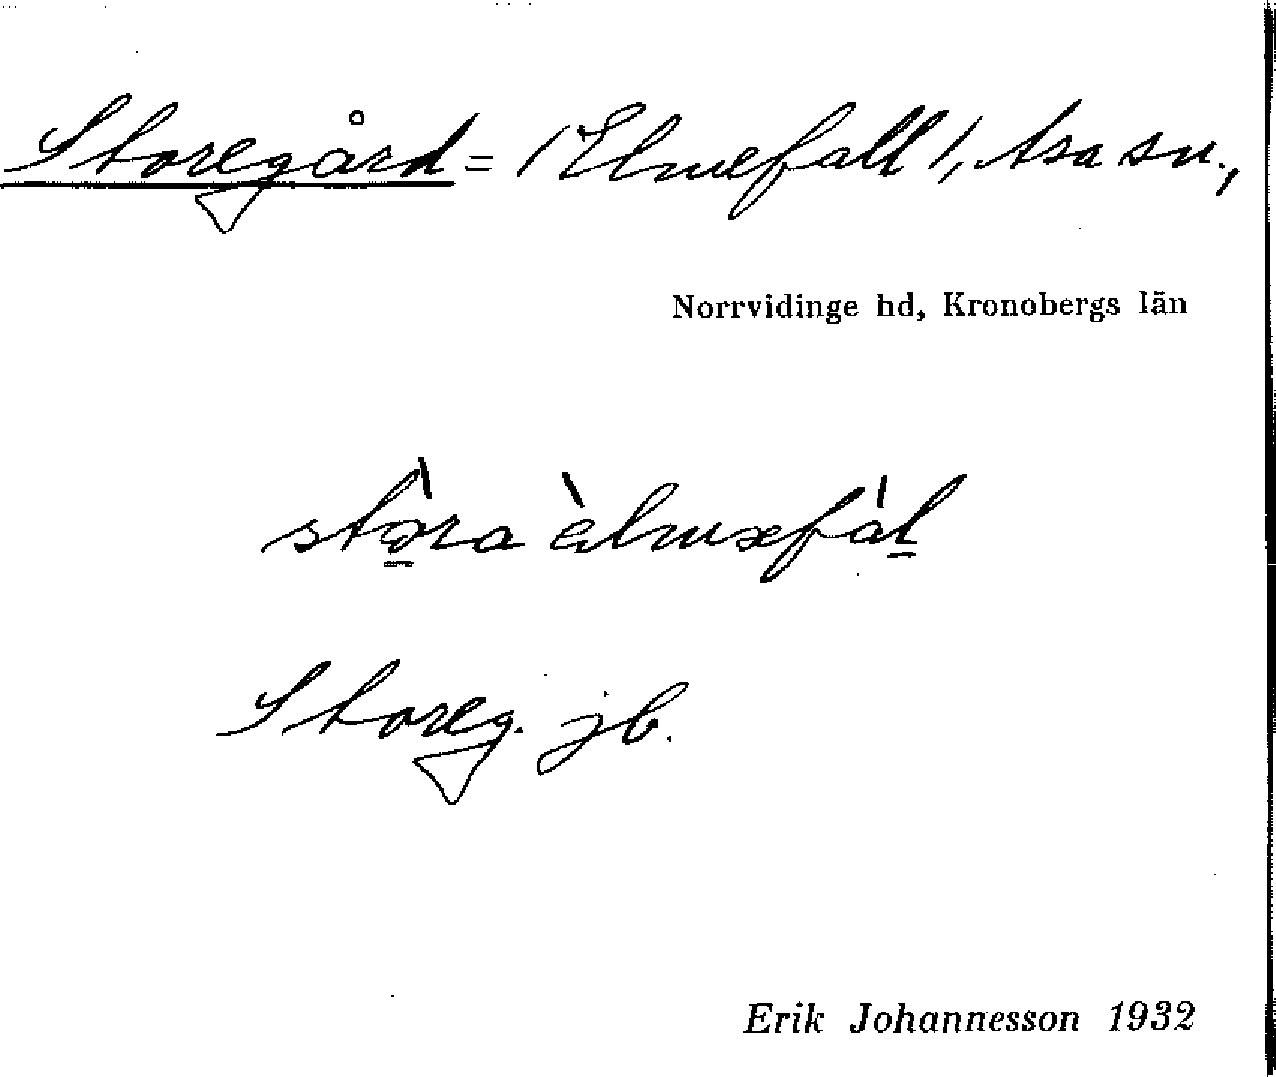 Storegård = /Elmefall/, Asa sn.,
Norrvidinge hd, Kronobergs län
stòra èlmæfál
Storeg. jb.
Erik Johannesson 1932